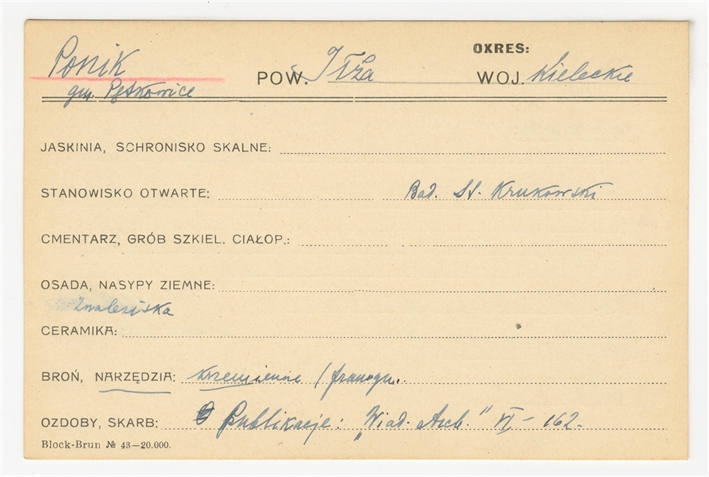 Ponik OKRES:
gm. Pętkowice POW. Iłża WOJ. Kieleckie
JASKINIA, SCHRONISKO SKALNE:
STANOWISKO OTWARTE: Bad. St. Krukowski
CMENTARZ, GRÓB SZKIEL. CIAŁOP.:
OSADA, NASYPY ZIEMNE:
Znaleziska
CERAMIKA:
BROŃ, NARZĘDZIA: krzemienne /
OZDOBY, SKARB: Publikacje: "Wiad. Arch." VI - 162.
Block-Brun № 43-20.000.